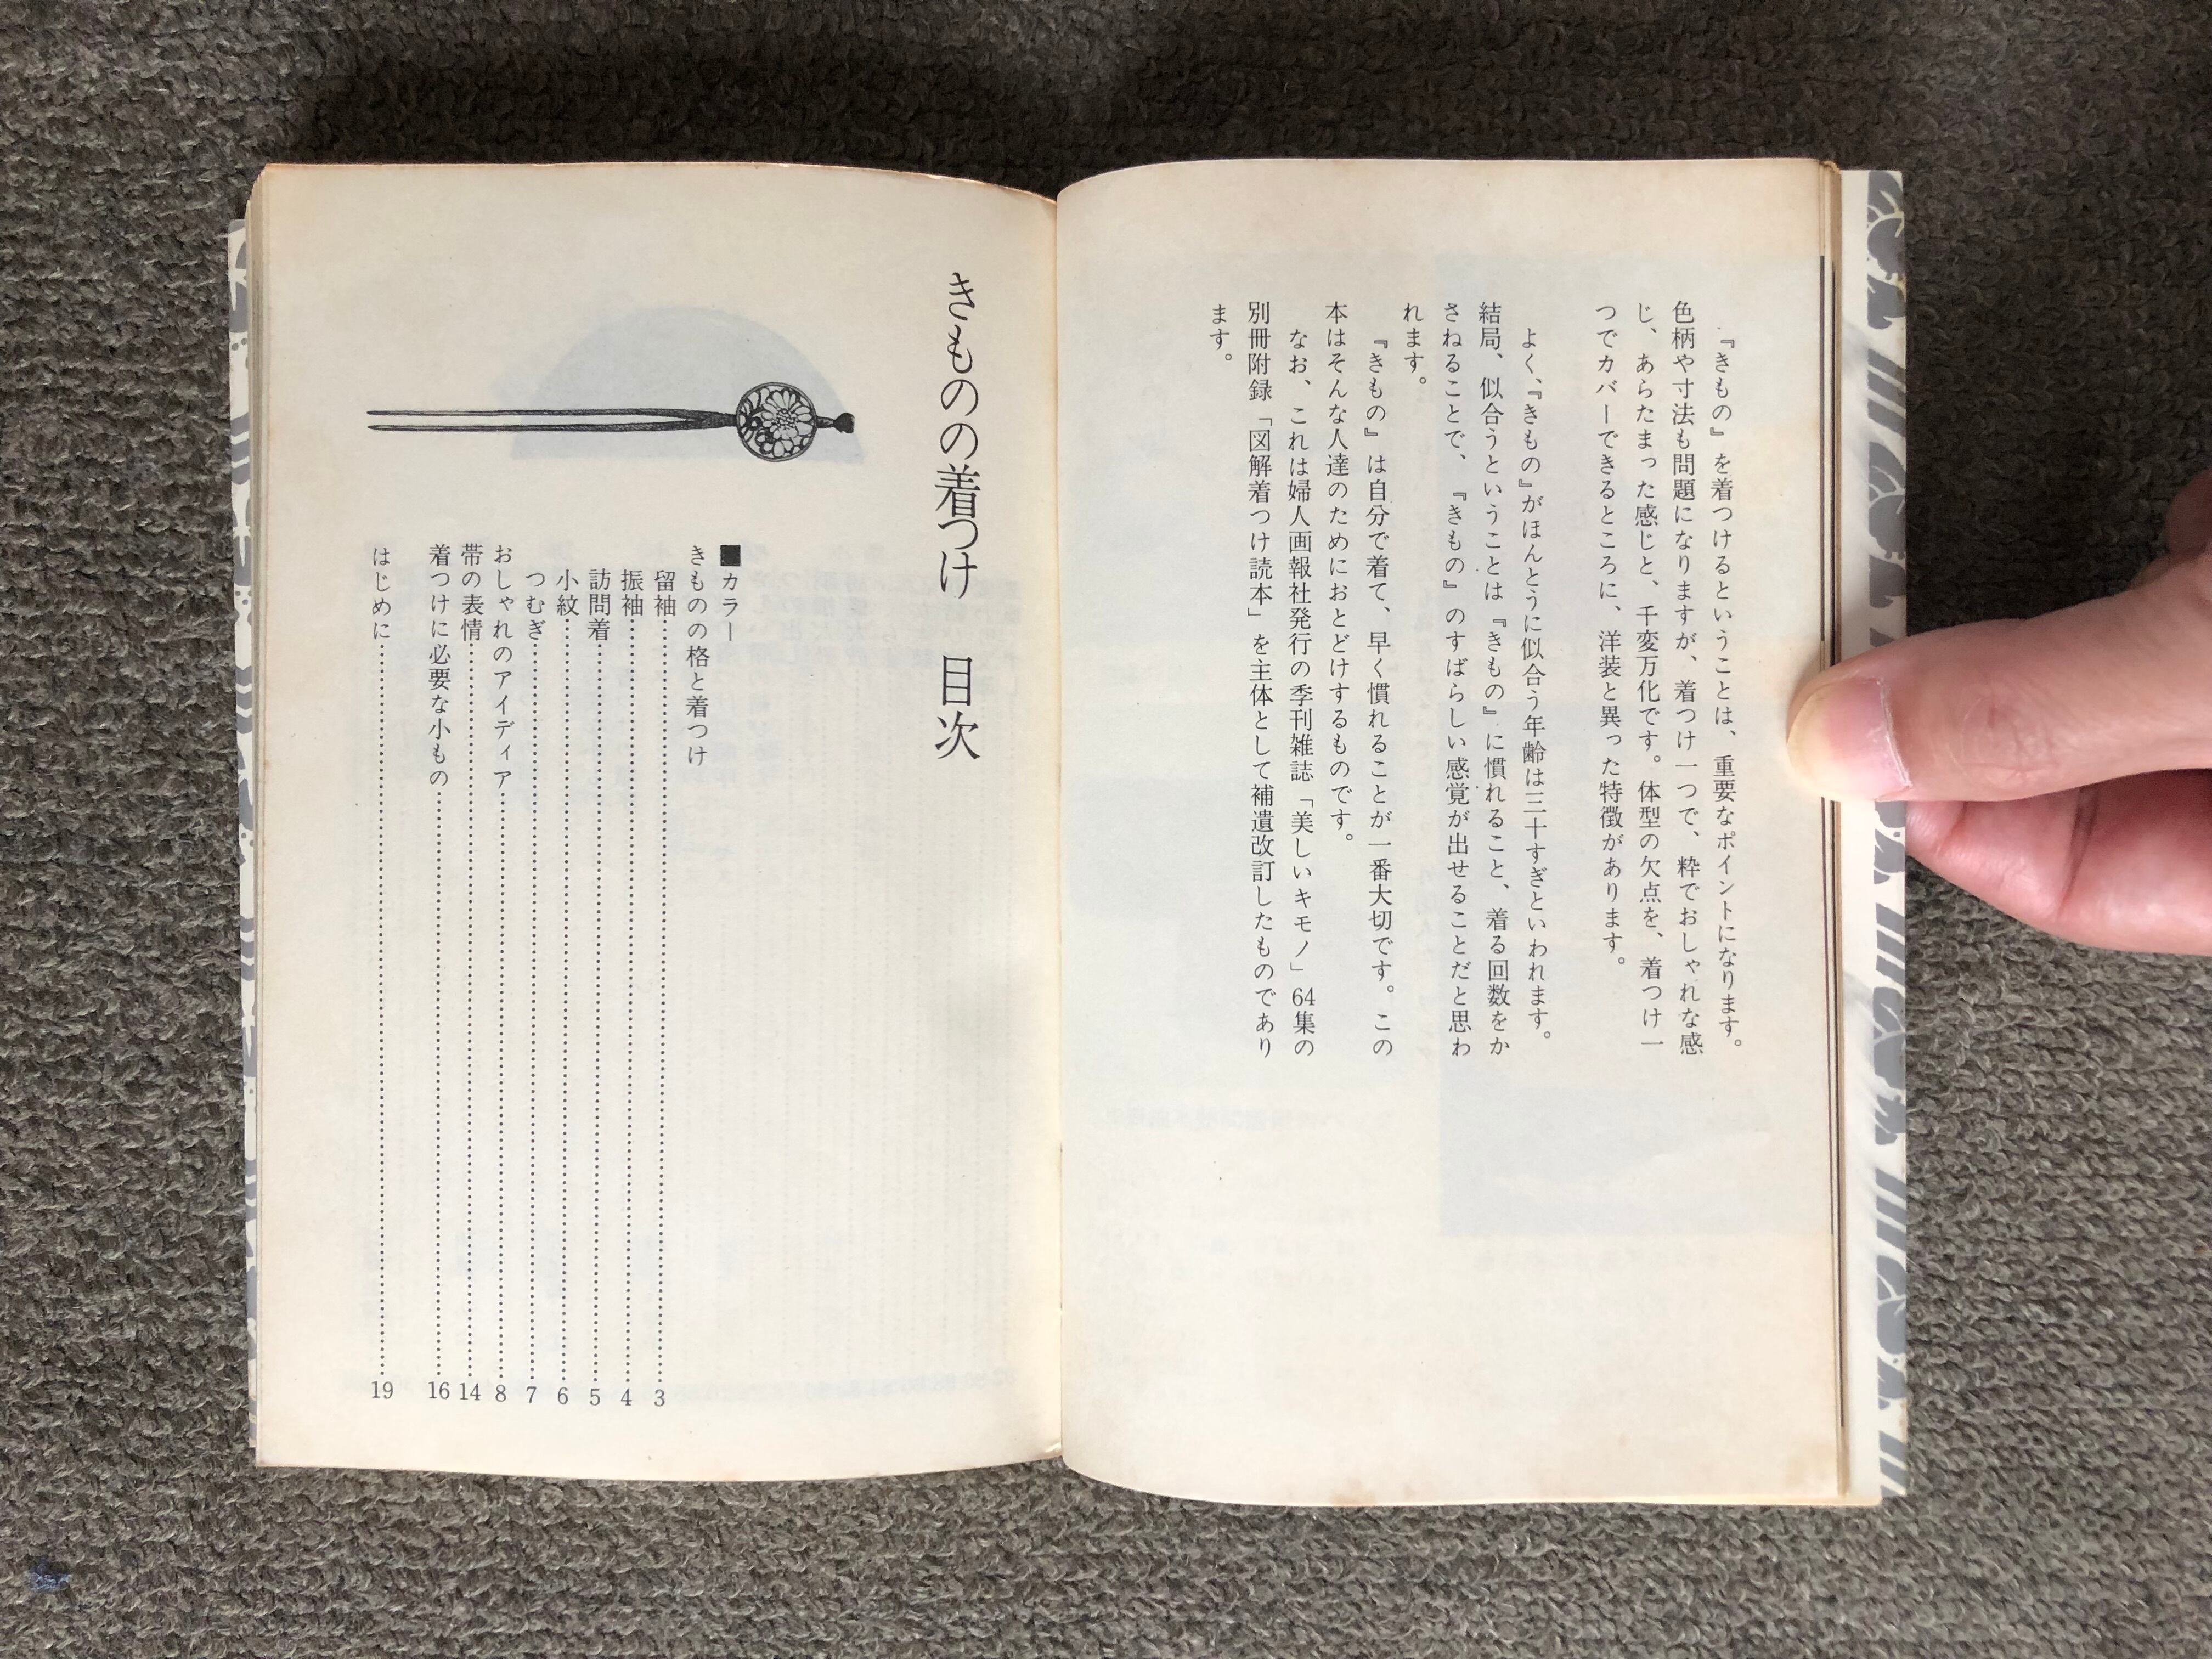 『きもの』を着つけるということは、重要なポイントになります。
色柄や寸法も問題になりますが、着つけ一つで、粋でおしゃれな感
じ、あらたまった感じと、千変万化です。体型の欠点を、着つけ一
つでカバーできるところに、洋装と異った特徴があります。
よく、『きもの』がほんとうに似合う年齢は三十すぎといわれます。
結局、似合うということは『きもの』に慣れること、着る回数をか
さねることで、『きもの』のすばらしい感覚が出せることだと思わ
れます。
『きもの』は自分で着て、早く慣れることが一番大切です。この
本はそんな人達のためにおとどけするものです。
なお、これは婦人画報社発行の季刊雑誌「美しいキモノ」64集の
別冊附録「図解着つけ読本」を主体として補遺改訂したものであり
ます。
きものの着つけ　目次
■カラー
きものの格と着つけ
留袖……………………3
振袖……………………4
訪問着……………………5
小紋……………………6
つむぎ……………………7
おしゃれのアイディア……………………8
帯の表情……………………14
着つけに必要な小もの……………………16
はじめに……………………19